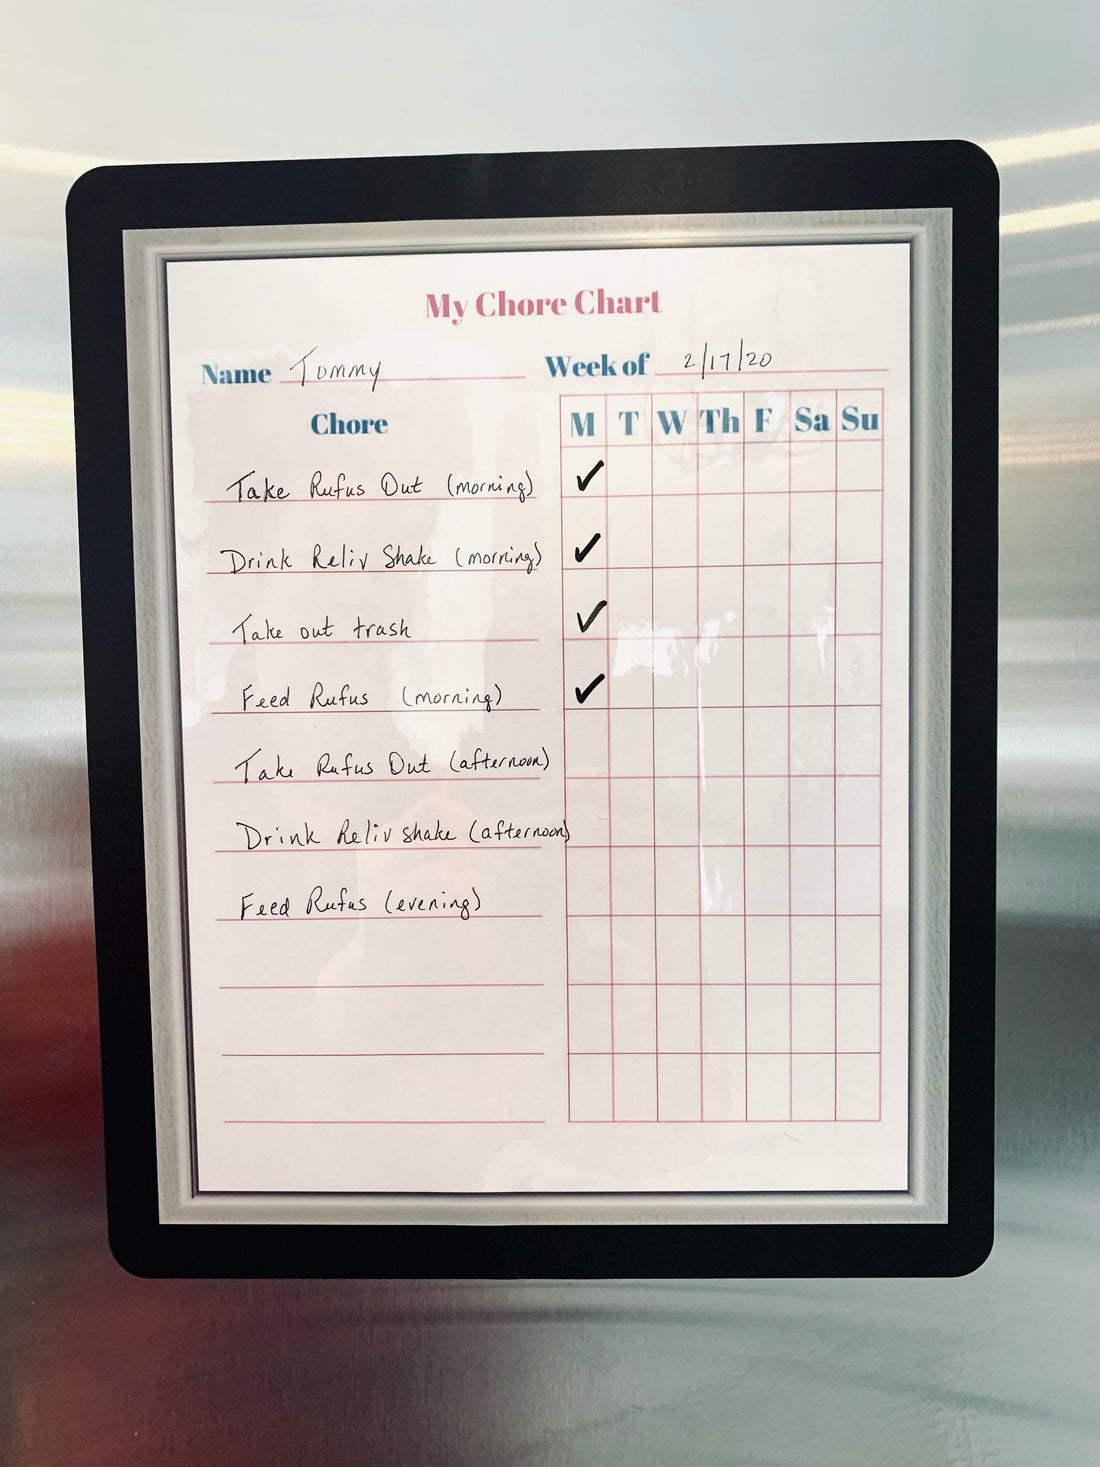 My Chore Chart
Name Tommy Week of 2/17/20
Chore M T W Th F Sa Su
Take Rufus Out (morning) ✓
Drink Reliv Shake (morning) ✓
Take out trash ✓
Feed Rufus (morning) ✓
Take Rufus Out (afternoon)
Drink Reliv shake (afternoon)
Feed Rufus (evening)